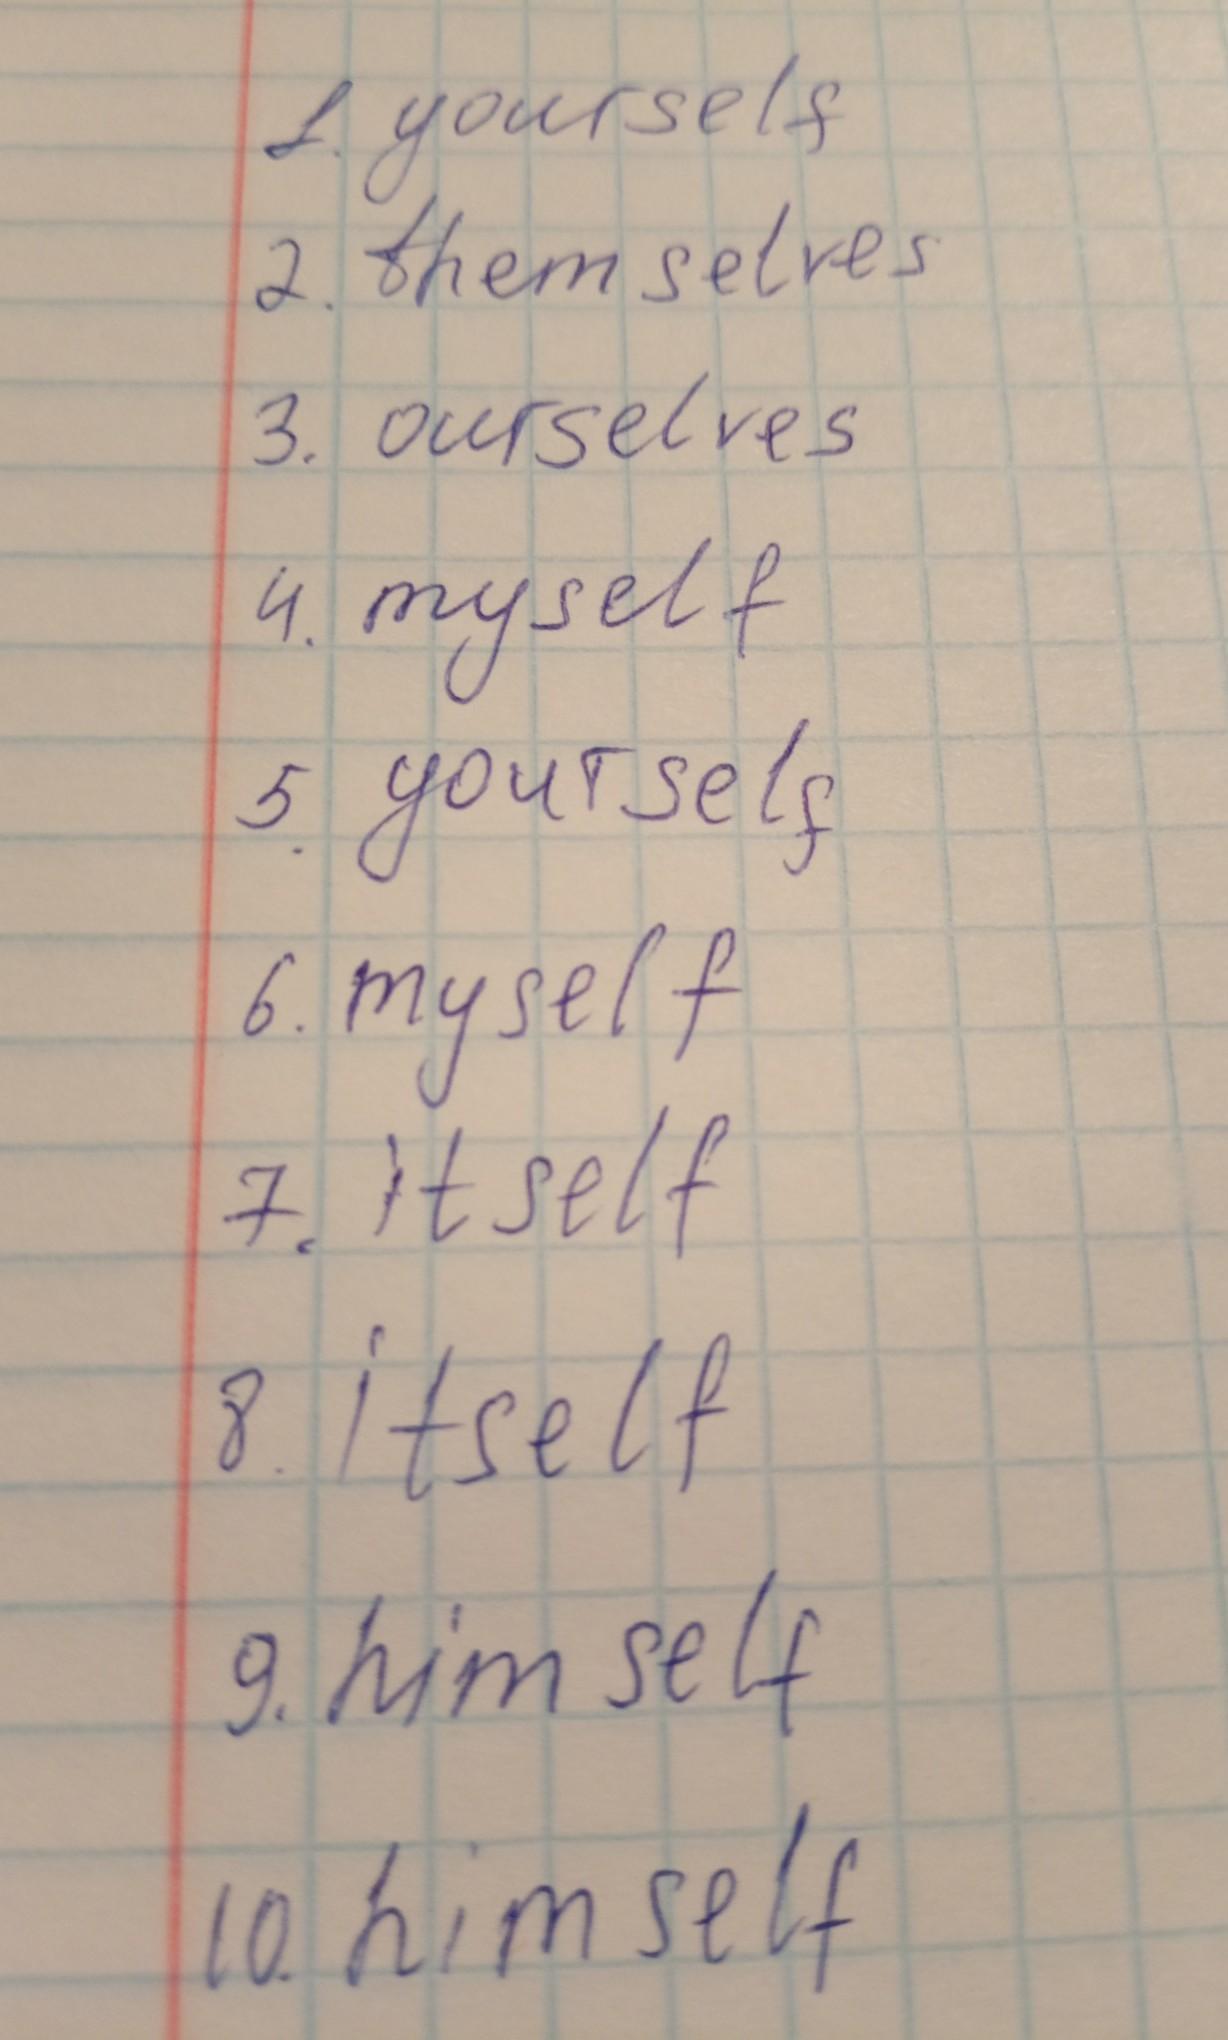 1. yourself
2. themselves
3. ourselves
4. myself
5. yourself
6. myself
7. itself
8. itself
9. himself
10. himself